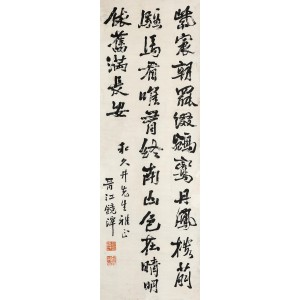 紫宸朝罷綴鵷鸞丹鳳樓前
駐馬看唯有終南山色在晴明
依舊滿長安
和久井先生雅正
晉江